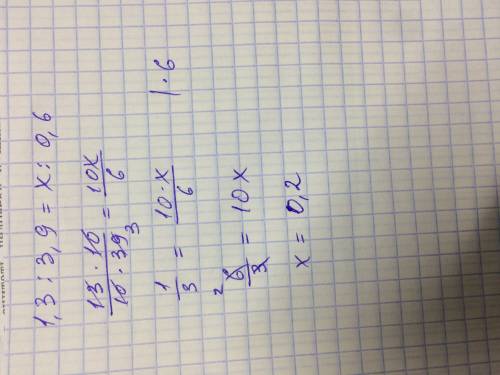 1,3 : 3,9 = x : 0,6
13 · 10 / 10 · 39 3 = 10x / 6
1 / 3 = 10 · x / 6 | · 6
2 6 / 3 = 10x
x = 0,2